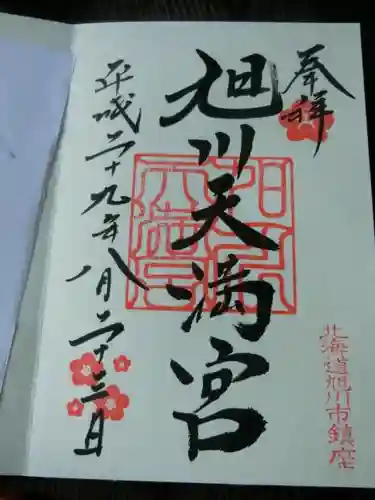 奉拝
旭川天満宮
平成二十九年八月二十三日
北海道旭川市鎮座